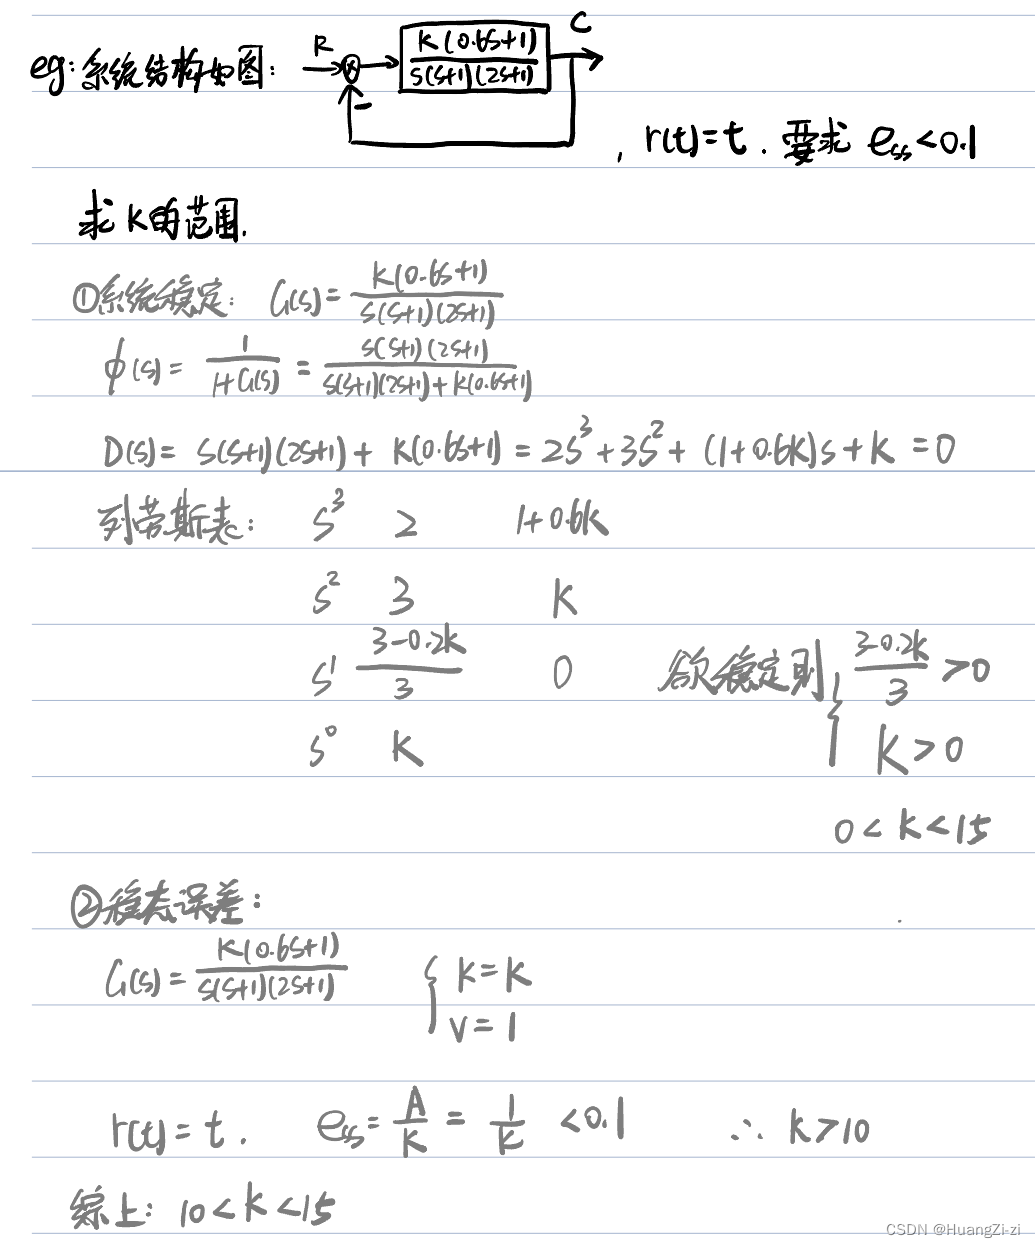 eg:系统结构如图: R C K(0.6S+1)/S(S+1)(2S+1) −
, r(t)=t. 要求 ess<0.1
求K的范围.
①系统稳定: G(s)= K(0.6S+1)/S(S+1)(2S+1)
ϕ(s)= 1/1+G(s) = S(S+1)(2S+1)/S(S+1)(2S+1)+K(0.6S+1)
D(s)= S(S+1)(2S+1)+ K(0.6S+1) = 2S³+3S²+ (1+0.6K)s+K =0
列劳斯表: S³ 2 1+0.6K
S² 3 K
S¹ 3-0.2K/3 0 欲稳定则{ 3-0.2K/3 >0
S⁰ K K>0
0<K<15
②稳态误差:
G(s)= K(0.6S+1)/S(S+1)(2S+1) { K=K
V=1
r(t)=t. ess= A/K = 1/K <0.1 ∴ K>10
综上: 10<K<15
CSDN @HuangZi-zi